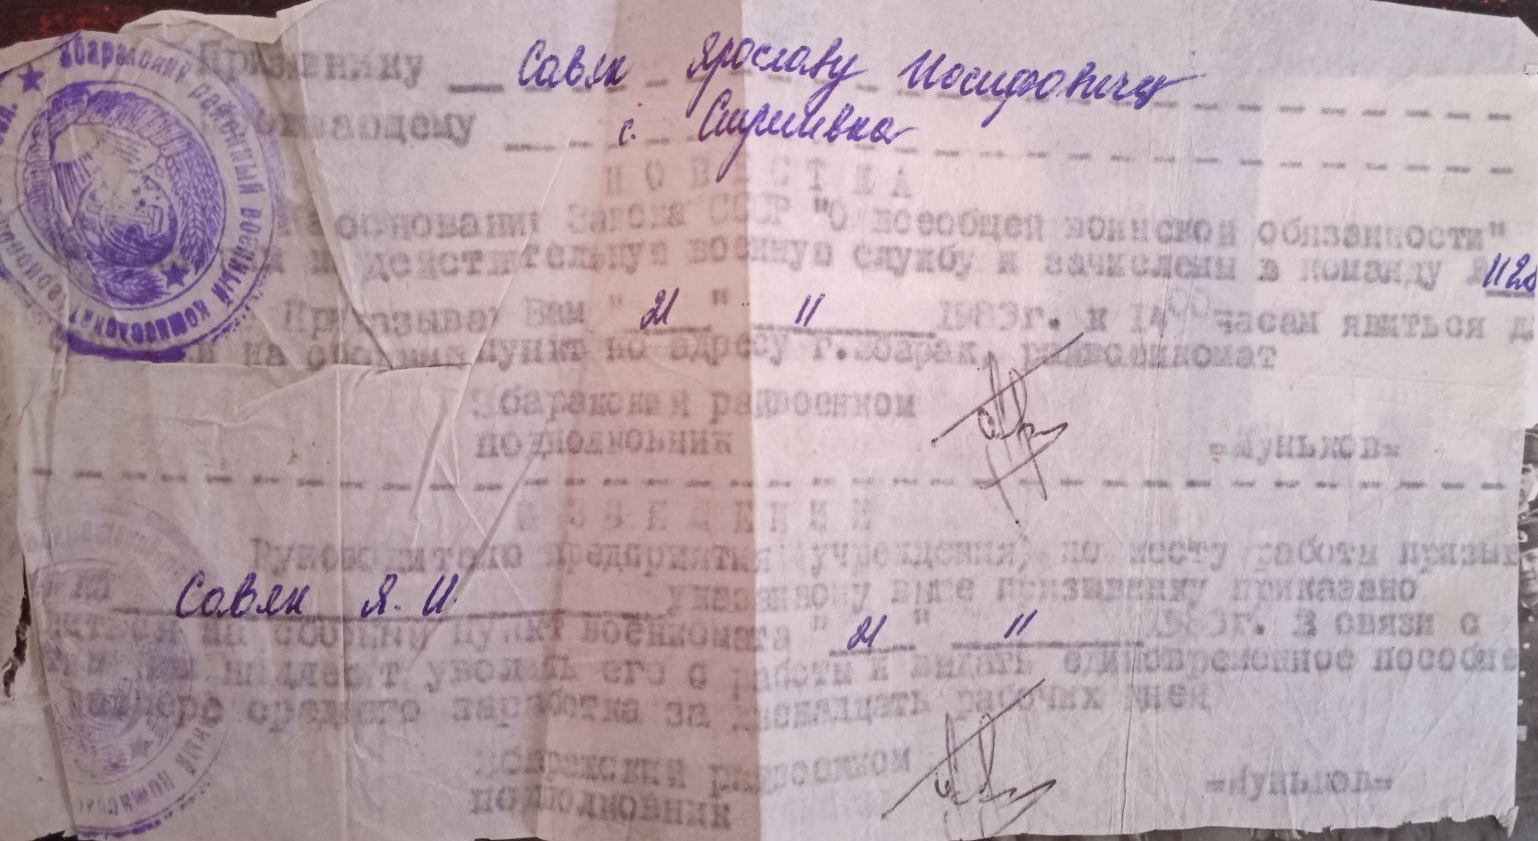 Призывнику Савяк Ярославу Иосифовичу
с.
П О В Е С Т К А
основании Закона СССР "О всеобщей воинской обязанности"
действительную военную службу и зачислены в команду 1120
Приказываю Вам "21" 11 1983г. к 14 00 часам явиться
на сборный пункт по адресу г.Збараж, райвоенкомат
Збаражский райвоенком
подполковник =Муньков=
И З В Е Щ Е Н И Е
Руководителю предприятия (учреждения) по месту работы призыв
Савяк Я. И. указанному выше призывнику приказано
на сборный пункт военкомата "21" 11 1983г. В связи с
надлежит уволить его с работы и выдать единовременное пособие
размере среднего заработка за двенадцать рабочих дней
Збаражский райвоенком
подполковник =Муньков=
районный военный комиссариат